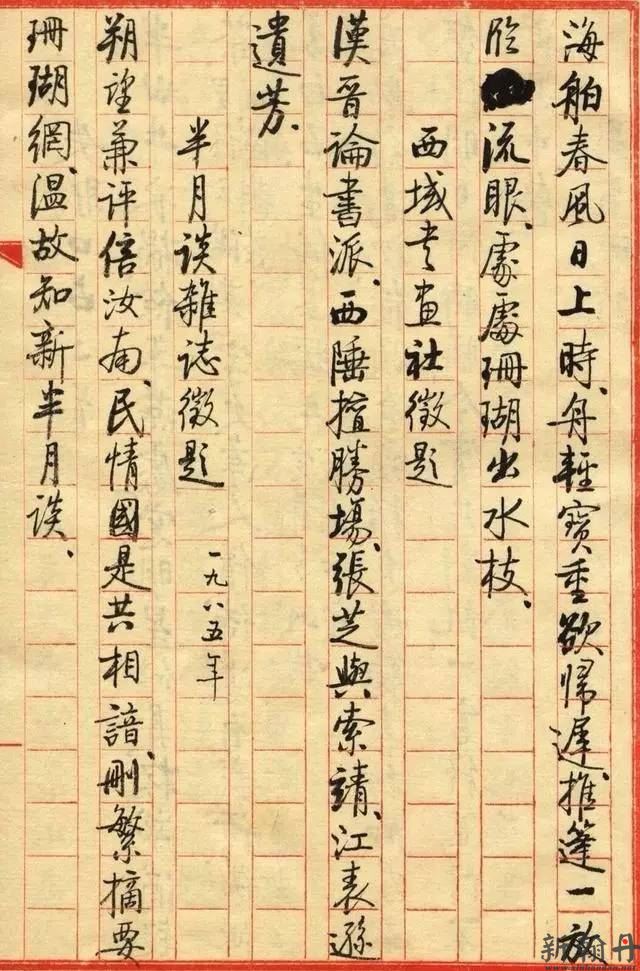 海舶春風日上時、舟輕寶重欲歸遲、推篷一放
流眼、處處珊瑚出水枝、
西域书画社徵題
漢晉論書派、西陲擅勝場、張芝與索靖、江表遜
遺芳、
半月談雜誌徵題 一九八五年
朔望兼評倍汝南、民情國是共相諳、刪繁摘要
珊瑚網、溫故知新半月談、
新翰丹